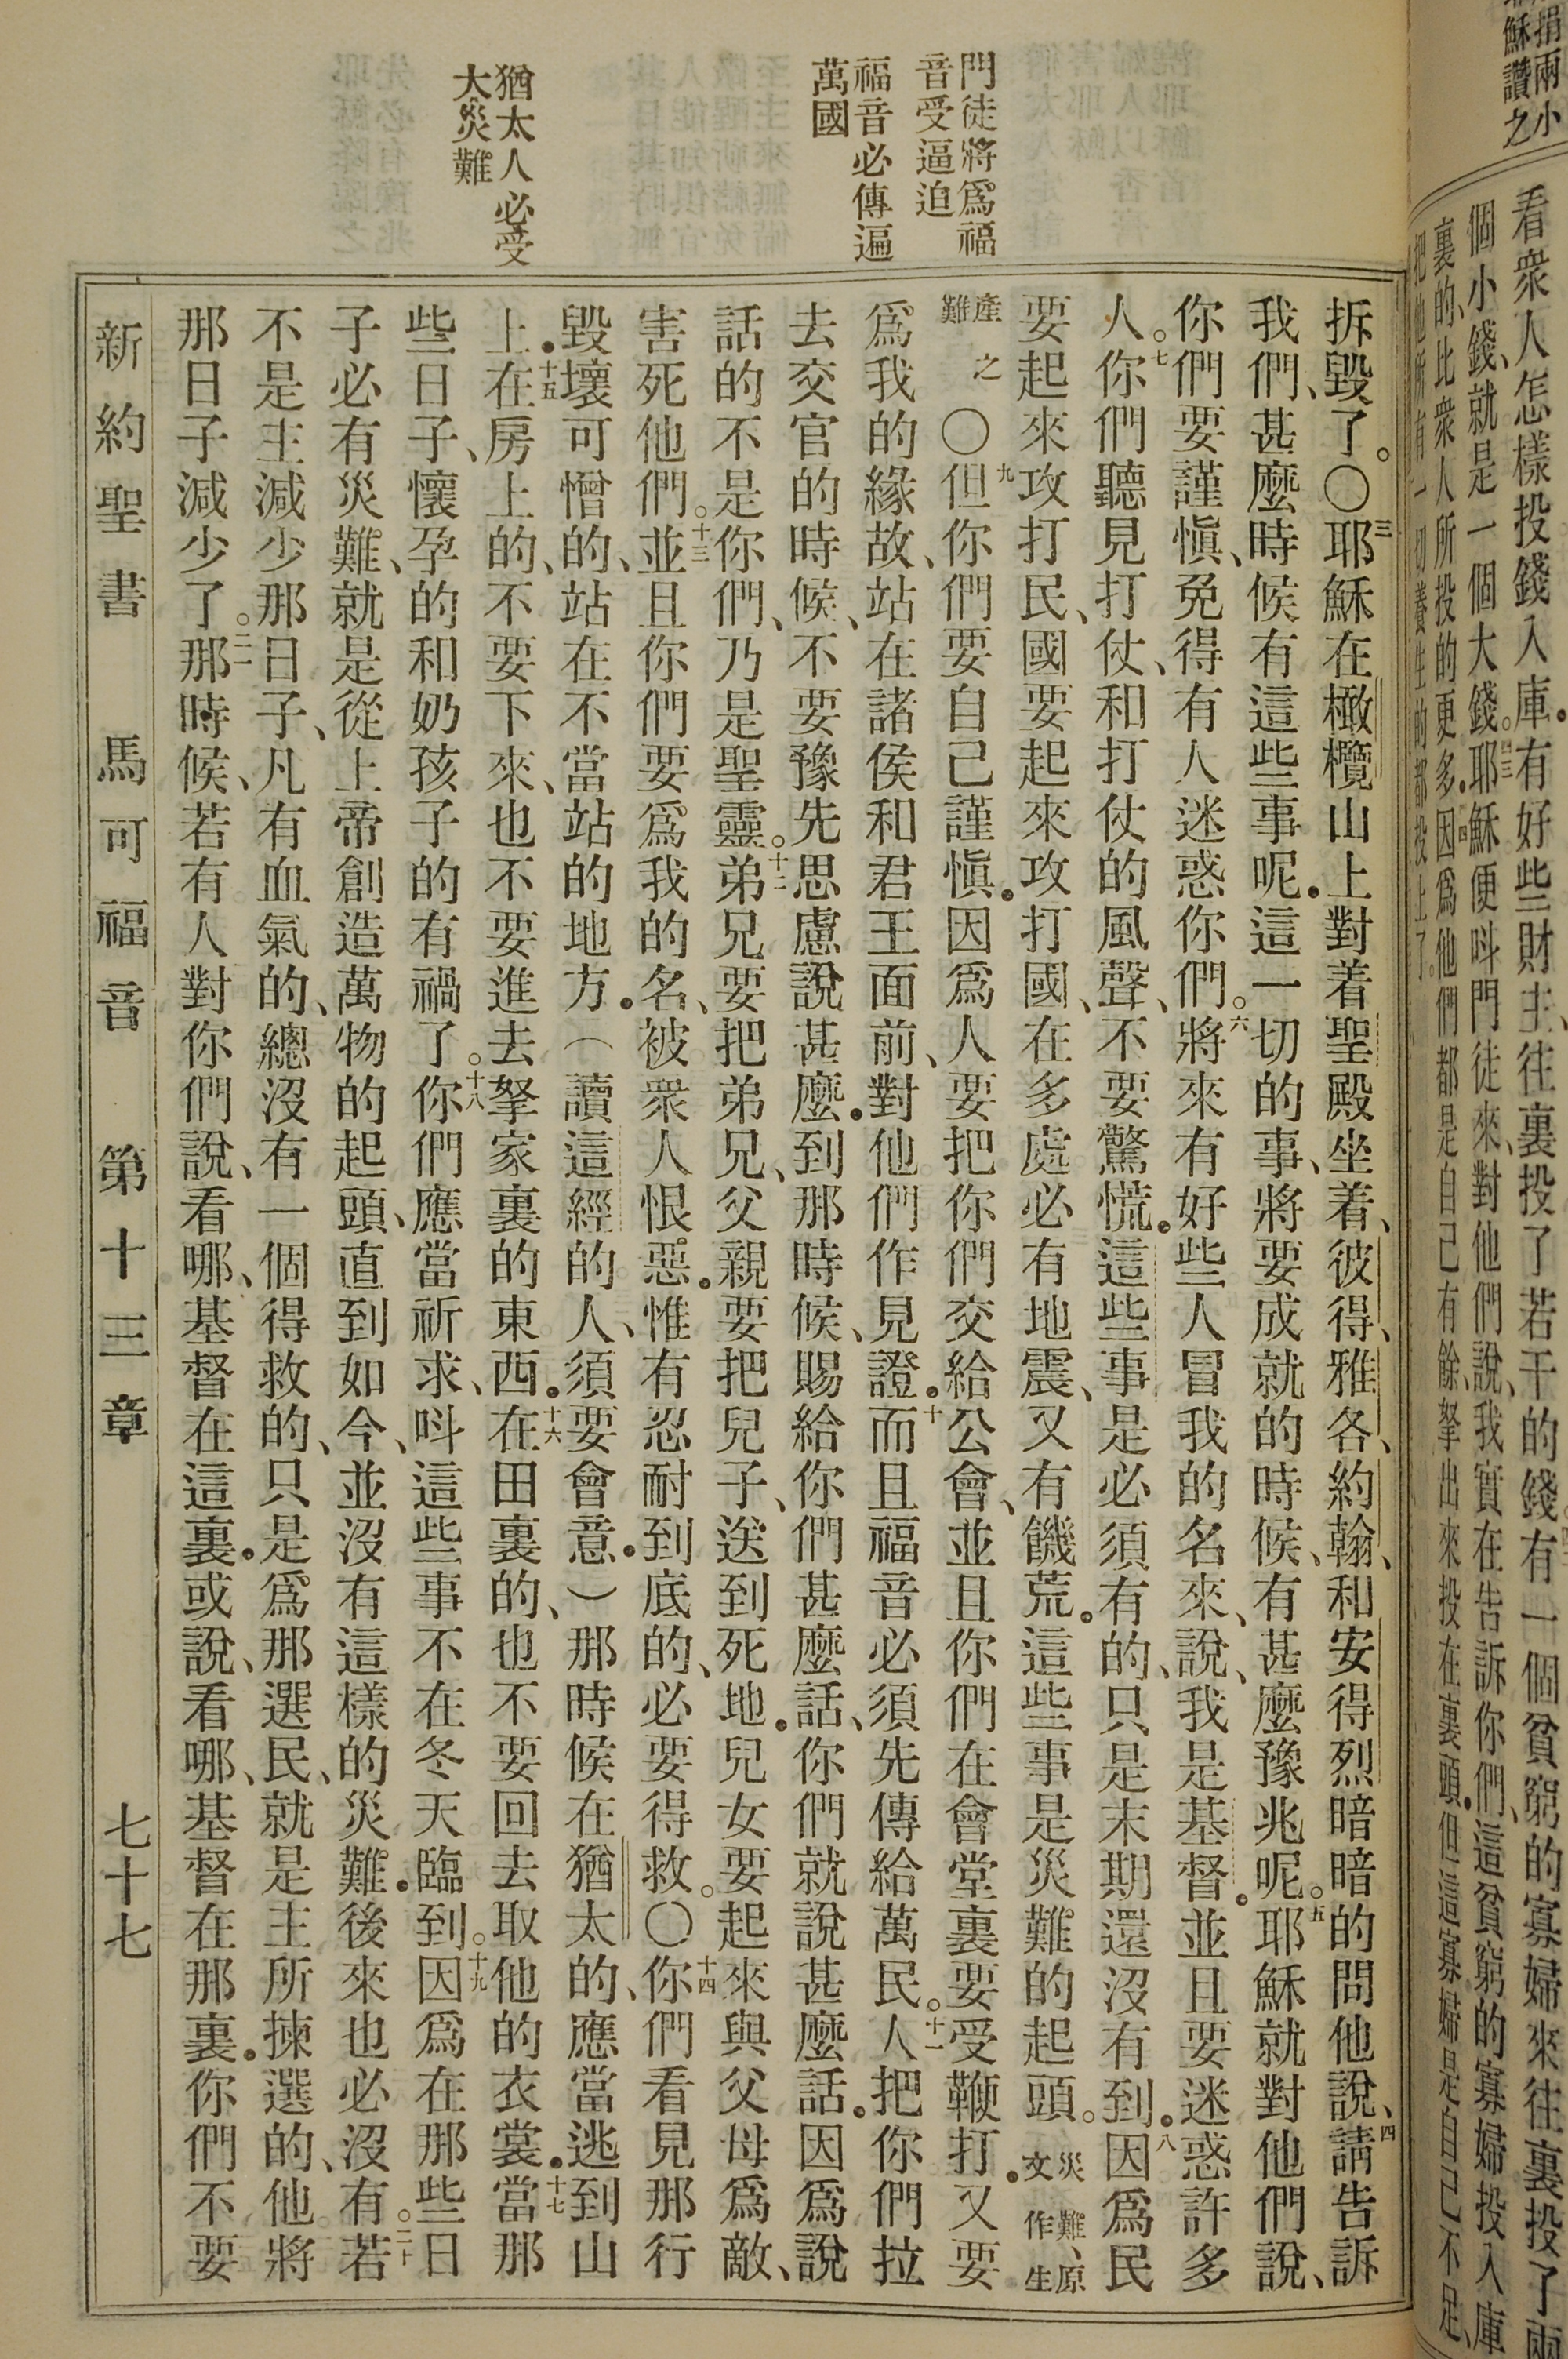 捐兩小
穌讚之
看衆人怎樣投錢入庫。有好些財主、往裏投了若干的錢。有一個貧窮的寡婦來往裏投了兩
個小錢、就是一個大錢。四三耶穌便呌門徒來、對他們說、我實在告訴你們、這貧窮的寡婦投入庫
裏的、比衆人所投的更多。因爲他們都是自己有餘、拏出來投在裏頭。但這寡婦是自己不足、
把他所有一切養生的都投上了。
門徒將爲福
音受逼迫
福音必傳遍
萬國
猶太人必受
大災難
拆毀了。〇三耶穌在橄欖山上對着聖殿坐着、彼得、雅各、約翰、和安得烈暗暗的問他說、四請告訴
我們、甚麼時候有這些事呢。這一切的事、將要成就的時候、有甚麼豫兆呢。五耶穌就對他們說、
你們要謹愼、免得有人迷惑你們。六將來有好些人冒我的名來、說、我是基督。並且要迷惑許多
人。七你們聽見打仗、和打仗的風聲、不要驚慌。這些事是必須有的、只是末期還沒有到。八因爲民
要起來攻打民、國要起來攻打國、在多處必有地震、又有饑荒。這些事是災難的起頭。災難、原文作生
產難之〇九但你們要自己謹愼。因爲人要把你們交給公會、並且你們在會堂裏要受鞭打。又要
爲我的緣故、站在諸侯和君王面前、對他們作見證。十而且福音必須先傳給萬民。十一人把你們拉
去交官的時候、不要豫先思慮說甚麼。到那時候、賜給你們甚麼話、你們就說甚麼話。因爲說
話的不是你們、乃是聖靈。十二弟兄要把弟兄、父親要把兒子、送到死地。兒女要起來與父母爲敵、
害死他們。十三並且你們要爲我的名、被衆人恨惡。惟有忍耐到底的、必要得救。〇十四你們看見那行
毀壞可憎的、站在不當站的地方。（讀這經的人、須要會意。）那時候在猶太的、應當逃到山
上。十五在房上的、不要下來、也不要進去拏家裏的東西。十六在田裏的、也不要回去取他的衣裳。十七當那
些日子、懷孕的和奶孩子的有禍了。十八你們應當祈求、呌這些事不在冬天臨到。十九因爲在那些日
子必有災難、就是從上帝創造萬物的起頭、直到如今、並沒有這樣的災難。後來也必沒有。二十若
不是主減少那日子、凡有血氣的、總沒有一個得救的、只是爲那選民、就是主所揀選的、他將
那日子減少了。二一那時候、若有人對你們說、看哪、基督在這裏。或說、看哪、基督在那裏。你們不要
新約聖書　馬可福音　第十三章　七十七